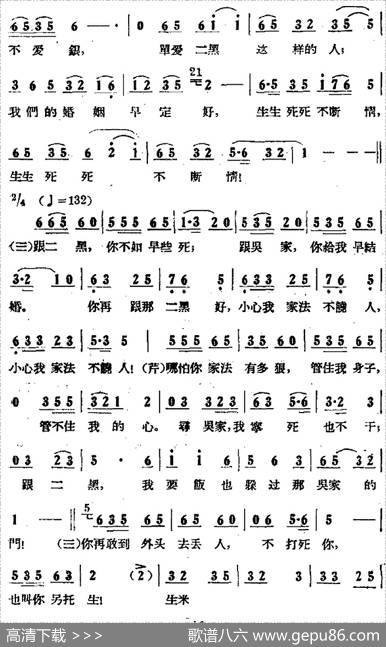 6535 6 - - · | 0 65 61 i | 65 32 35 5 |
不爱銀, 單爱二黑 这样的人;
365 32 16 | 12 35 21 2 — | 6·5 35 1765 |
我們的婚姻早定好, 生生死死不断情,
65 35 6 2 i | 65 32 5·6 32 | 1 — — ‖
生生死死 不断情!
2/4 (♩=132)
665 60 | 555 65 | 1·3 20 | 535 20 | 535 65 |
(三)跟二黑, 你不如早些死; 跟吳家, 你給我早結
3·2 10 | 63 25 | 76 5 | 633 25 | 76 5 |
婚。 你再跟那二黑好, 小心我家法不饒人,
633 23 | 5·3 5 | 555 65 | 35 60 | 535 65 |
小心我家法不饒人! (芹)哪怕你家法有多狠, 管住我身子,
0 355 | 3321 2 | 03 323 | 63 5·6 | 3·2 3 |
管不住我的心。 尋吳家, 我寧死也不干;
03 23 | 5 · 6 | i i | 65 3 5 | 65 32 |
跟二黑, 我要飯也躲过那吳家的
1 — ‖ 5 635 65 | 65 60 | 02 5·6 | 5 — |
門! (三)你再敢到外头去丢人, 不打死你,
535 63 | 2 (2) | 32 35 | 32 3 | 33 25 |
也叫你另托生! 生米
高清下载 >>>
歌谱八六 www.gepu86.com